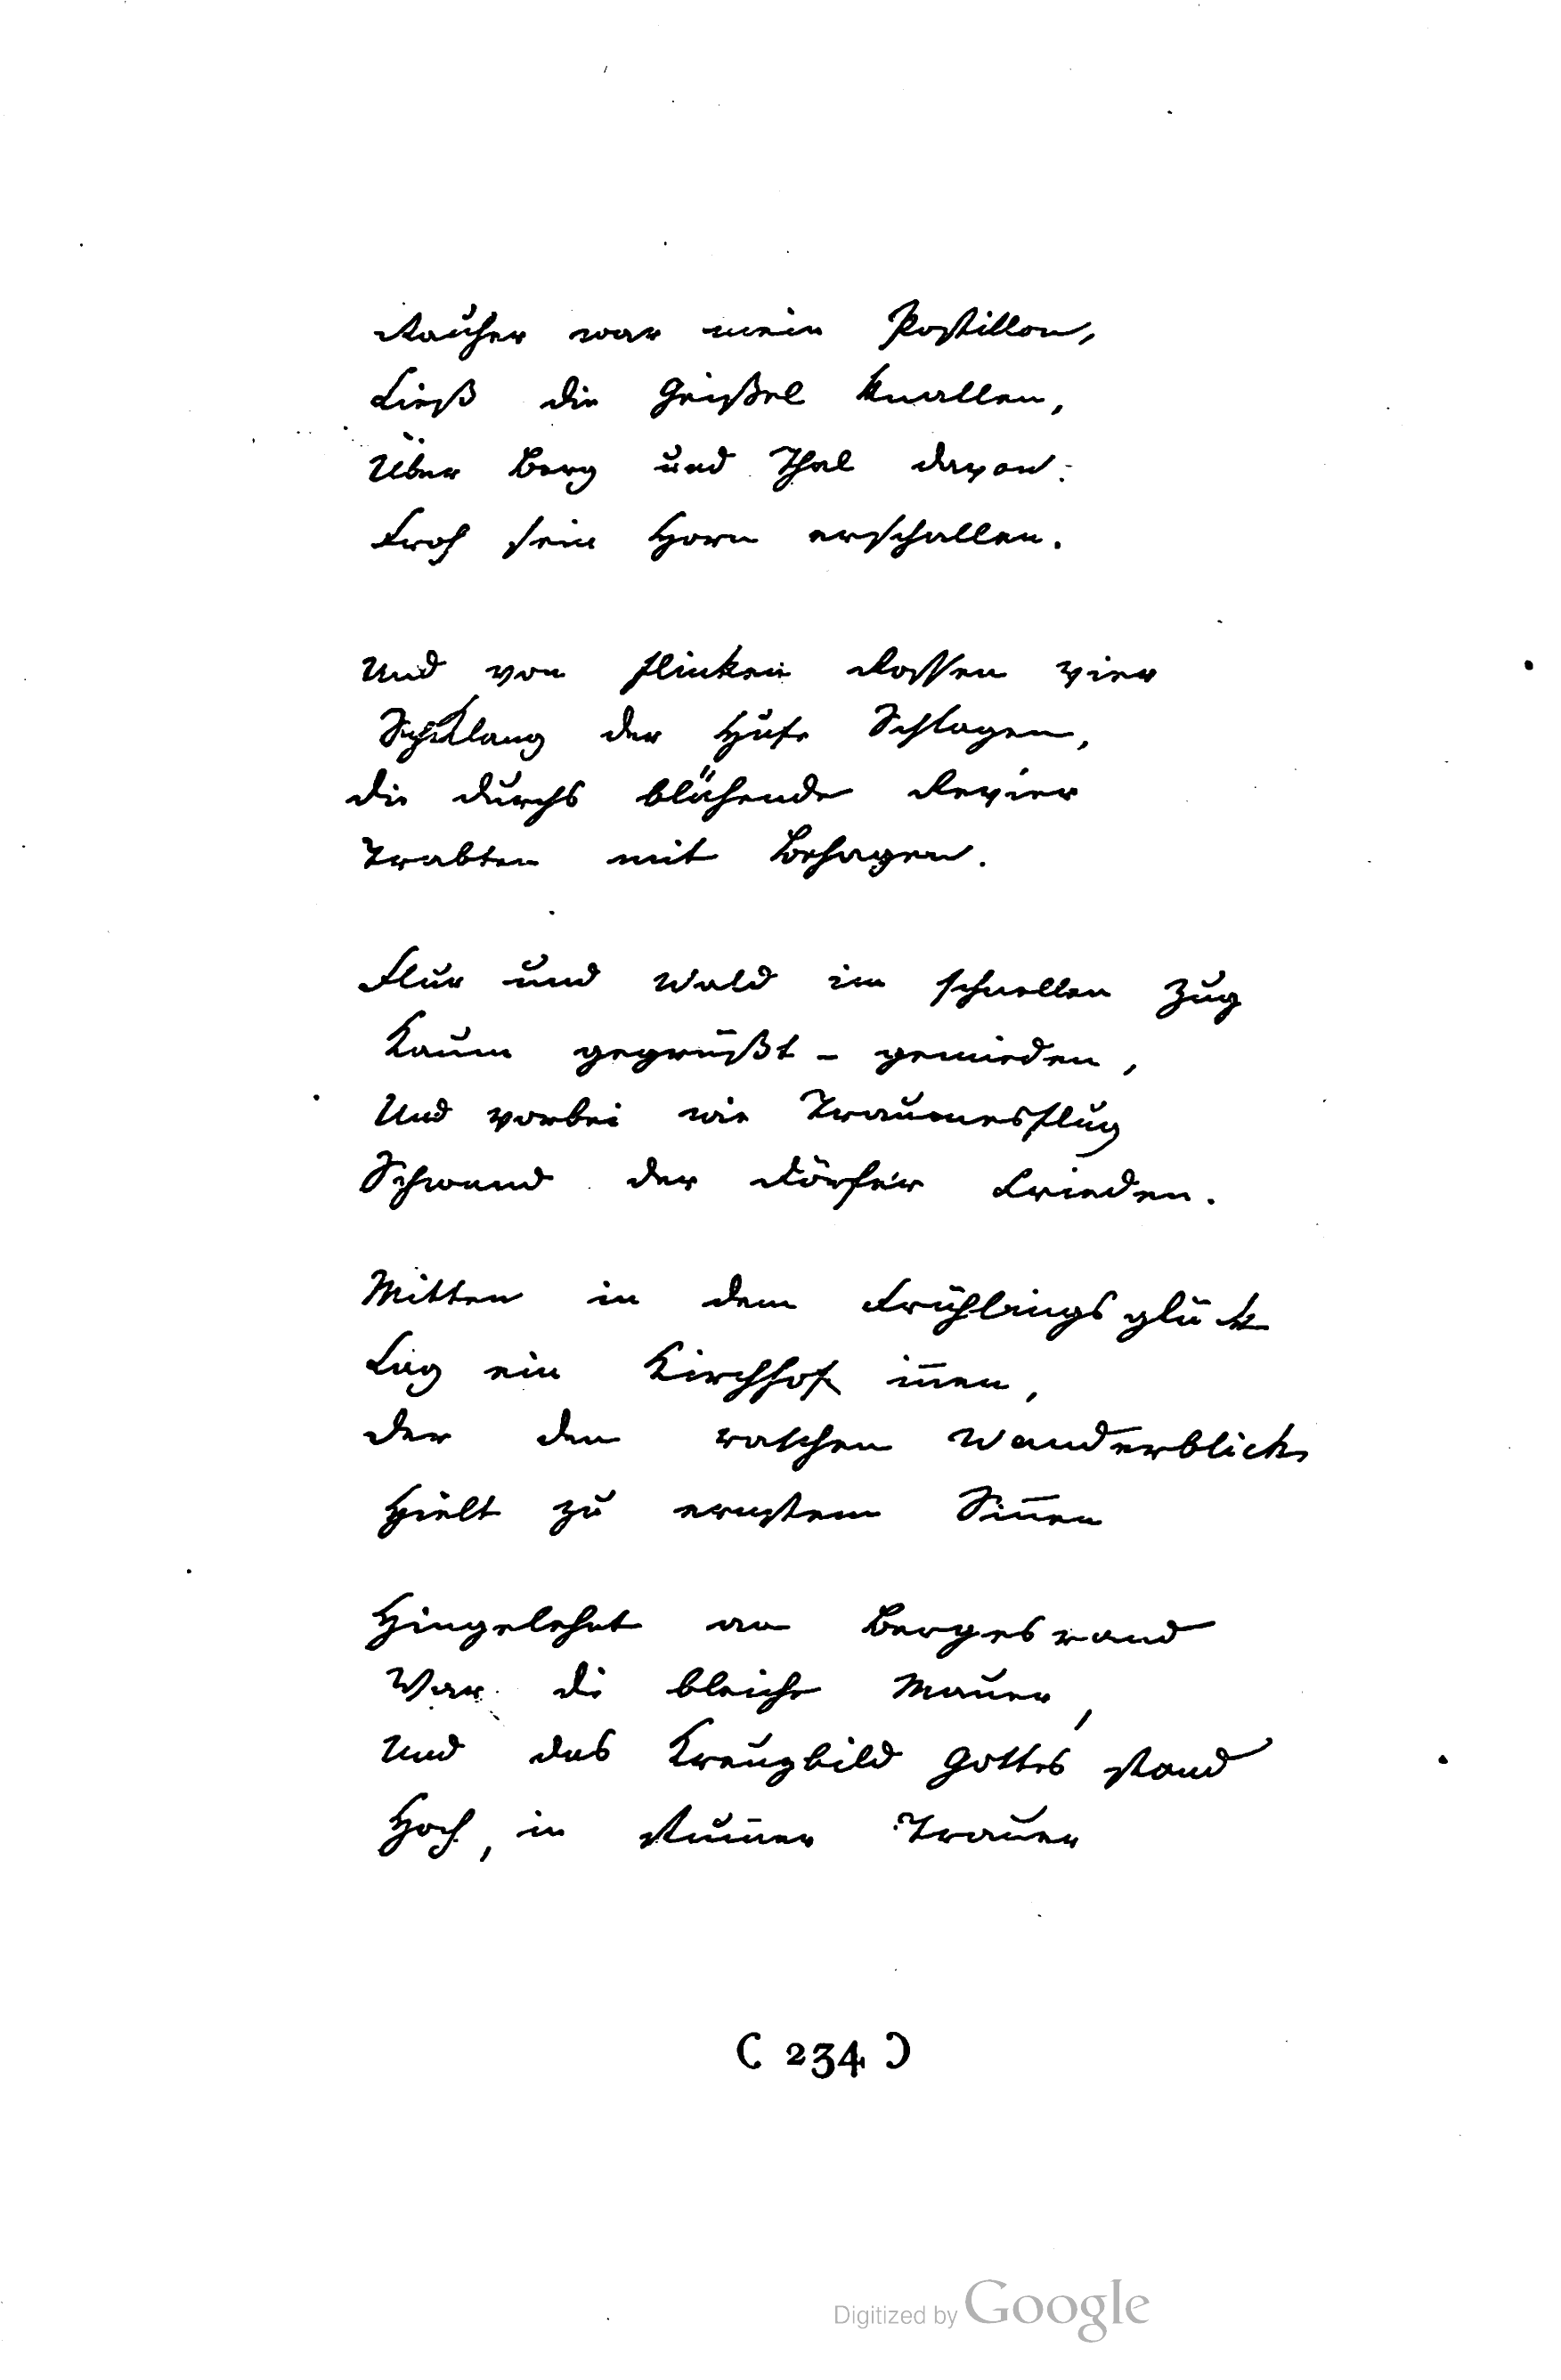 Rauher war mein Postillon,
Ließ die Geißel knallen,
Über Berg und Thal davon:
Froh sein Horn erschallen.
Und von flinken Rossen vier
der Hufe Schlagen,
die durchs blühende Revier
Trabten mit Behagen.
Flur und Wald im schnellen Zug
Kaum gegrüßt - gemieden,
Und vorbei wie Traumesflug
Schwand der Dörfer Frieden.
Mitten in dem Frühlingsglück
Lag ein Kirchhof in̄en,
der den raschen Wanderblick
Hielt zu ernstem Sin̄en
Hingelehnt an Bergesrand
War die bleiche Mauer,
Und das Kreuzbild Gottes stand
Hoch, in stum̄er Trauer
( 234 )
Digitized by Google